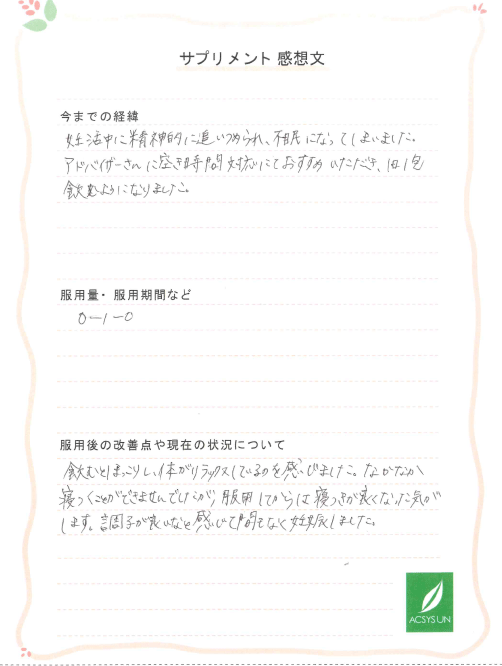 サプリメント 感想文
今までの経緯
妊活中に精神的に追いつめられ、不眠になってしまいました。
アドバイザーさんに空き時間対応にておすすめいただき、1日1包
飲むようになりました。
服用量・服用期間など
0-1-0
服用後の改善点や現在の状況について
飲むとほっこりし、体がリラックスしているのを感じました。なかなか
寝つくことができませんでしたが、服用してからは寝つきが良くなった気が
します。調子が良いなと感じて間もなく妊娠しました。
ACSYSUN